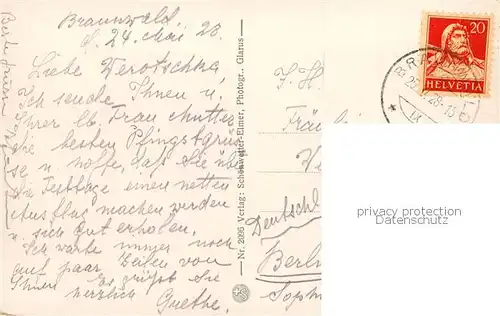 Braunwald
d. 24. Mai 28.
Liebe Werotschka
Ich sende Ihnen u.
Ihrer lb. Frau Mutter
die besten Pfingstgrüs-
se u. hoffe, daß Sie über
die Festtage einen netten
Ausflug machen werden
u. sich gut erholen.
Ich warte immer noch
auf paar Zeilen von
Ihnen Es grüßt Sie
herzlich Grethe.
Nr. 2096 Verlag: Schönwetter-Elmer, Photogr., Glarus
20
HELVETIA
Deutschl
Berl
Soph
privacy protection
Datenschutz